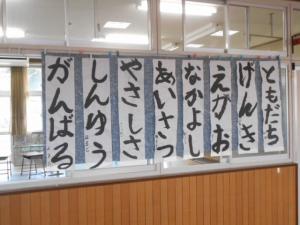 ともだち
げんき
えがお
なかよし
あいさつ
やさしさ
しんゆう
がんばる